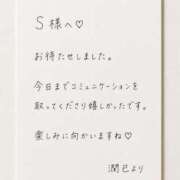 S様へ♡
お待たせしました。
今日までコミュニケーションを
取ってくださり嬉しかったです。
楽しみに向かいますね♡
潤己より